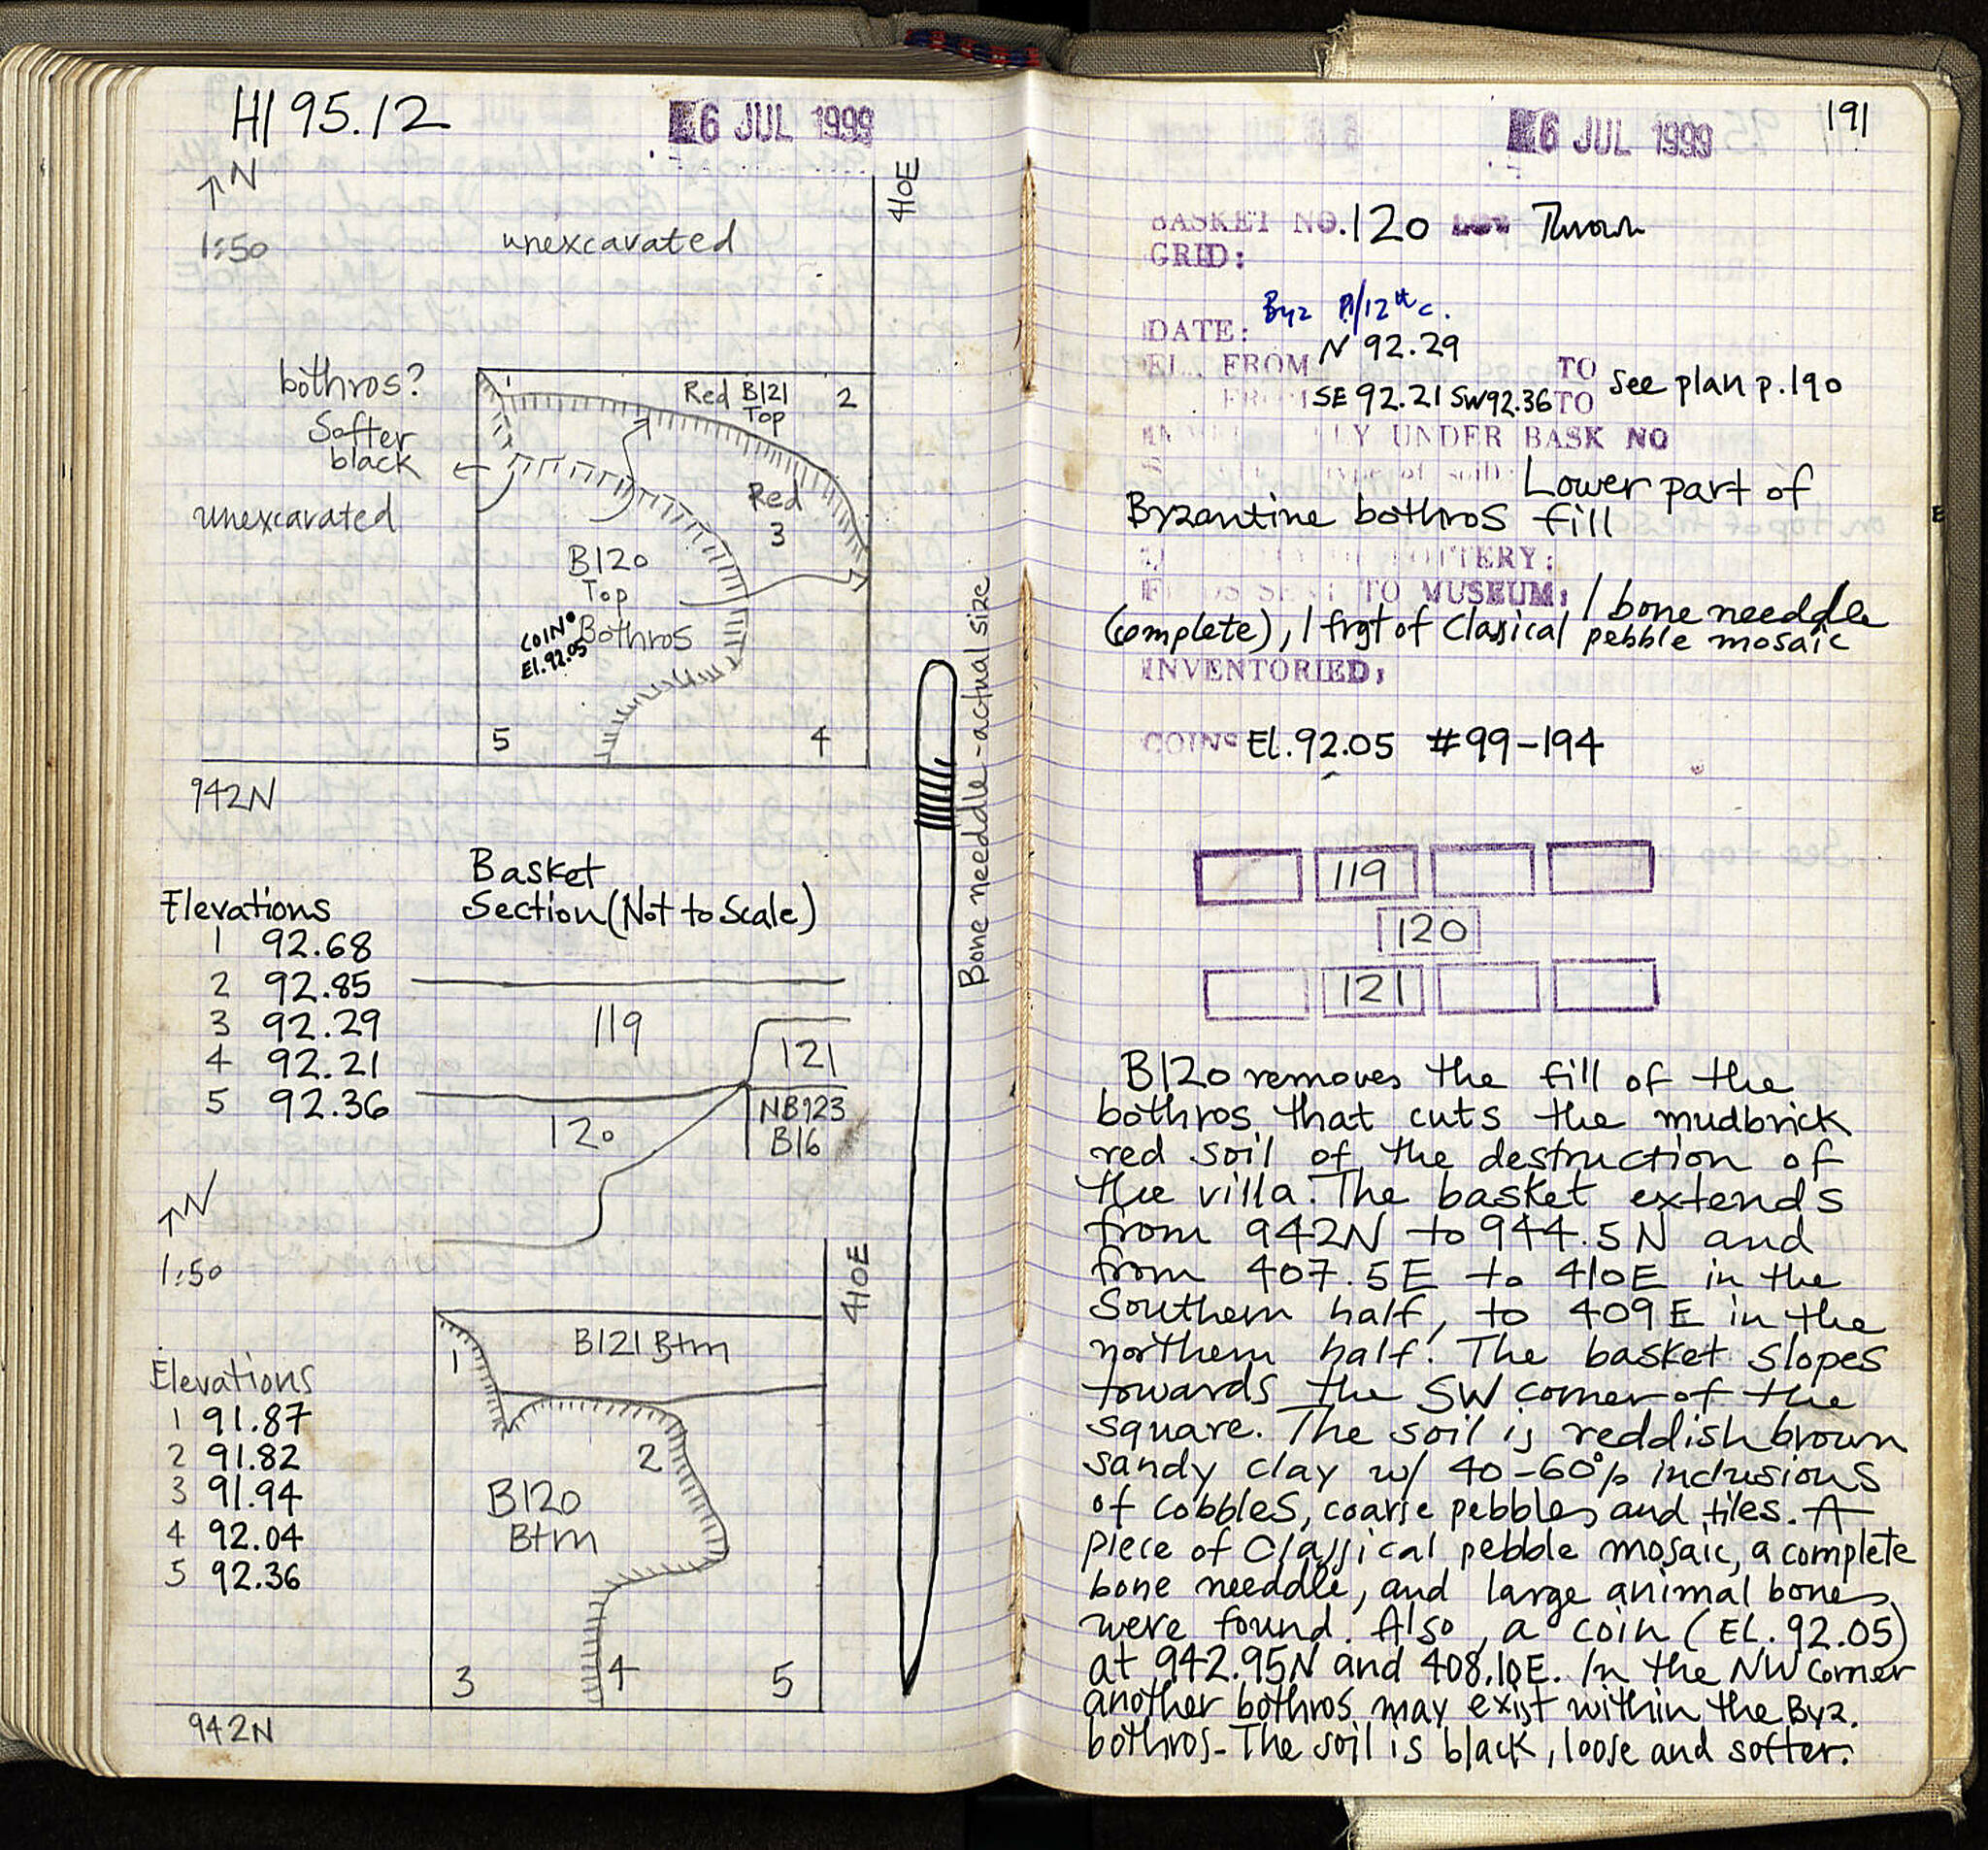 HJ 95.12
6 JUL 1999
N
1:50
unexcavated
410E
bothros?
Softer
black
unexcavated
1
Red B121
Top
2
Red
3
B120
Top
Bothros
COIN
El.92.05
5
4
942N
Elevations
1 92.68
2 92.85
3 92.29
4 92.21
5 92.36
Basket
Section (Not to Scale)
119
121
120
NB123
B16
N
1:50
410E
1
B121 Btm
2
B120
Btm
3
4
5
942N
Elevations
1 91.87
2 91.82
3 91.94
4 92.04
5 92.36
Bone needdle - actual size
6 JUL 1999
191
BASKET NO. 120 LOT Thrown
GRID:
Byz 11/12th c.
DATE:
EL. FROM N 92.29 TO
FROM SE 92.21 SW92.36 TO see plan p.190
LY UNDER BASK NO
type of soil: Lower part of
Byzantine bothros fill
POTTERY:
TO MUSEUM: 1 bone needdle
(complete), 1 frgt of Clasical pebble mosaic
INVENTORIED:
COINS El.92.05 #99-194
119
120
121
B120 removes the fill of the
bothros that cuts the mudbrick
red soil of the destruction of
the villa. The basket extends
from 942N to 944.5N and
from 407.5E to 410E in the
Southern half, to 409E in the
northern half. The basket slopes
towards the SW corner of the
square. The soil is reddish brown
sandy clay w/ 40-60% inclusions
of cobbles, coarse pebbles and tiles. A
piece of Classical pebble mosaic, a complete
bone needdle, and large animal bones
were found. Also, a coin (EL. 92.05)
at 942.95N and 408.10E. In the NW corner
another bothros may exist within the Byz.
bothros - The soil is black, loose and softer.